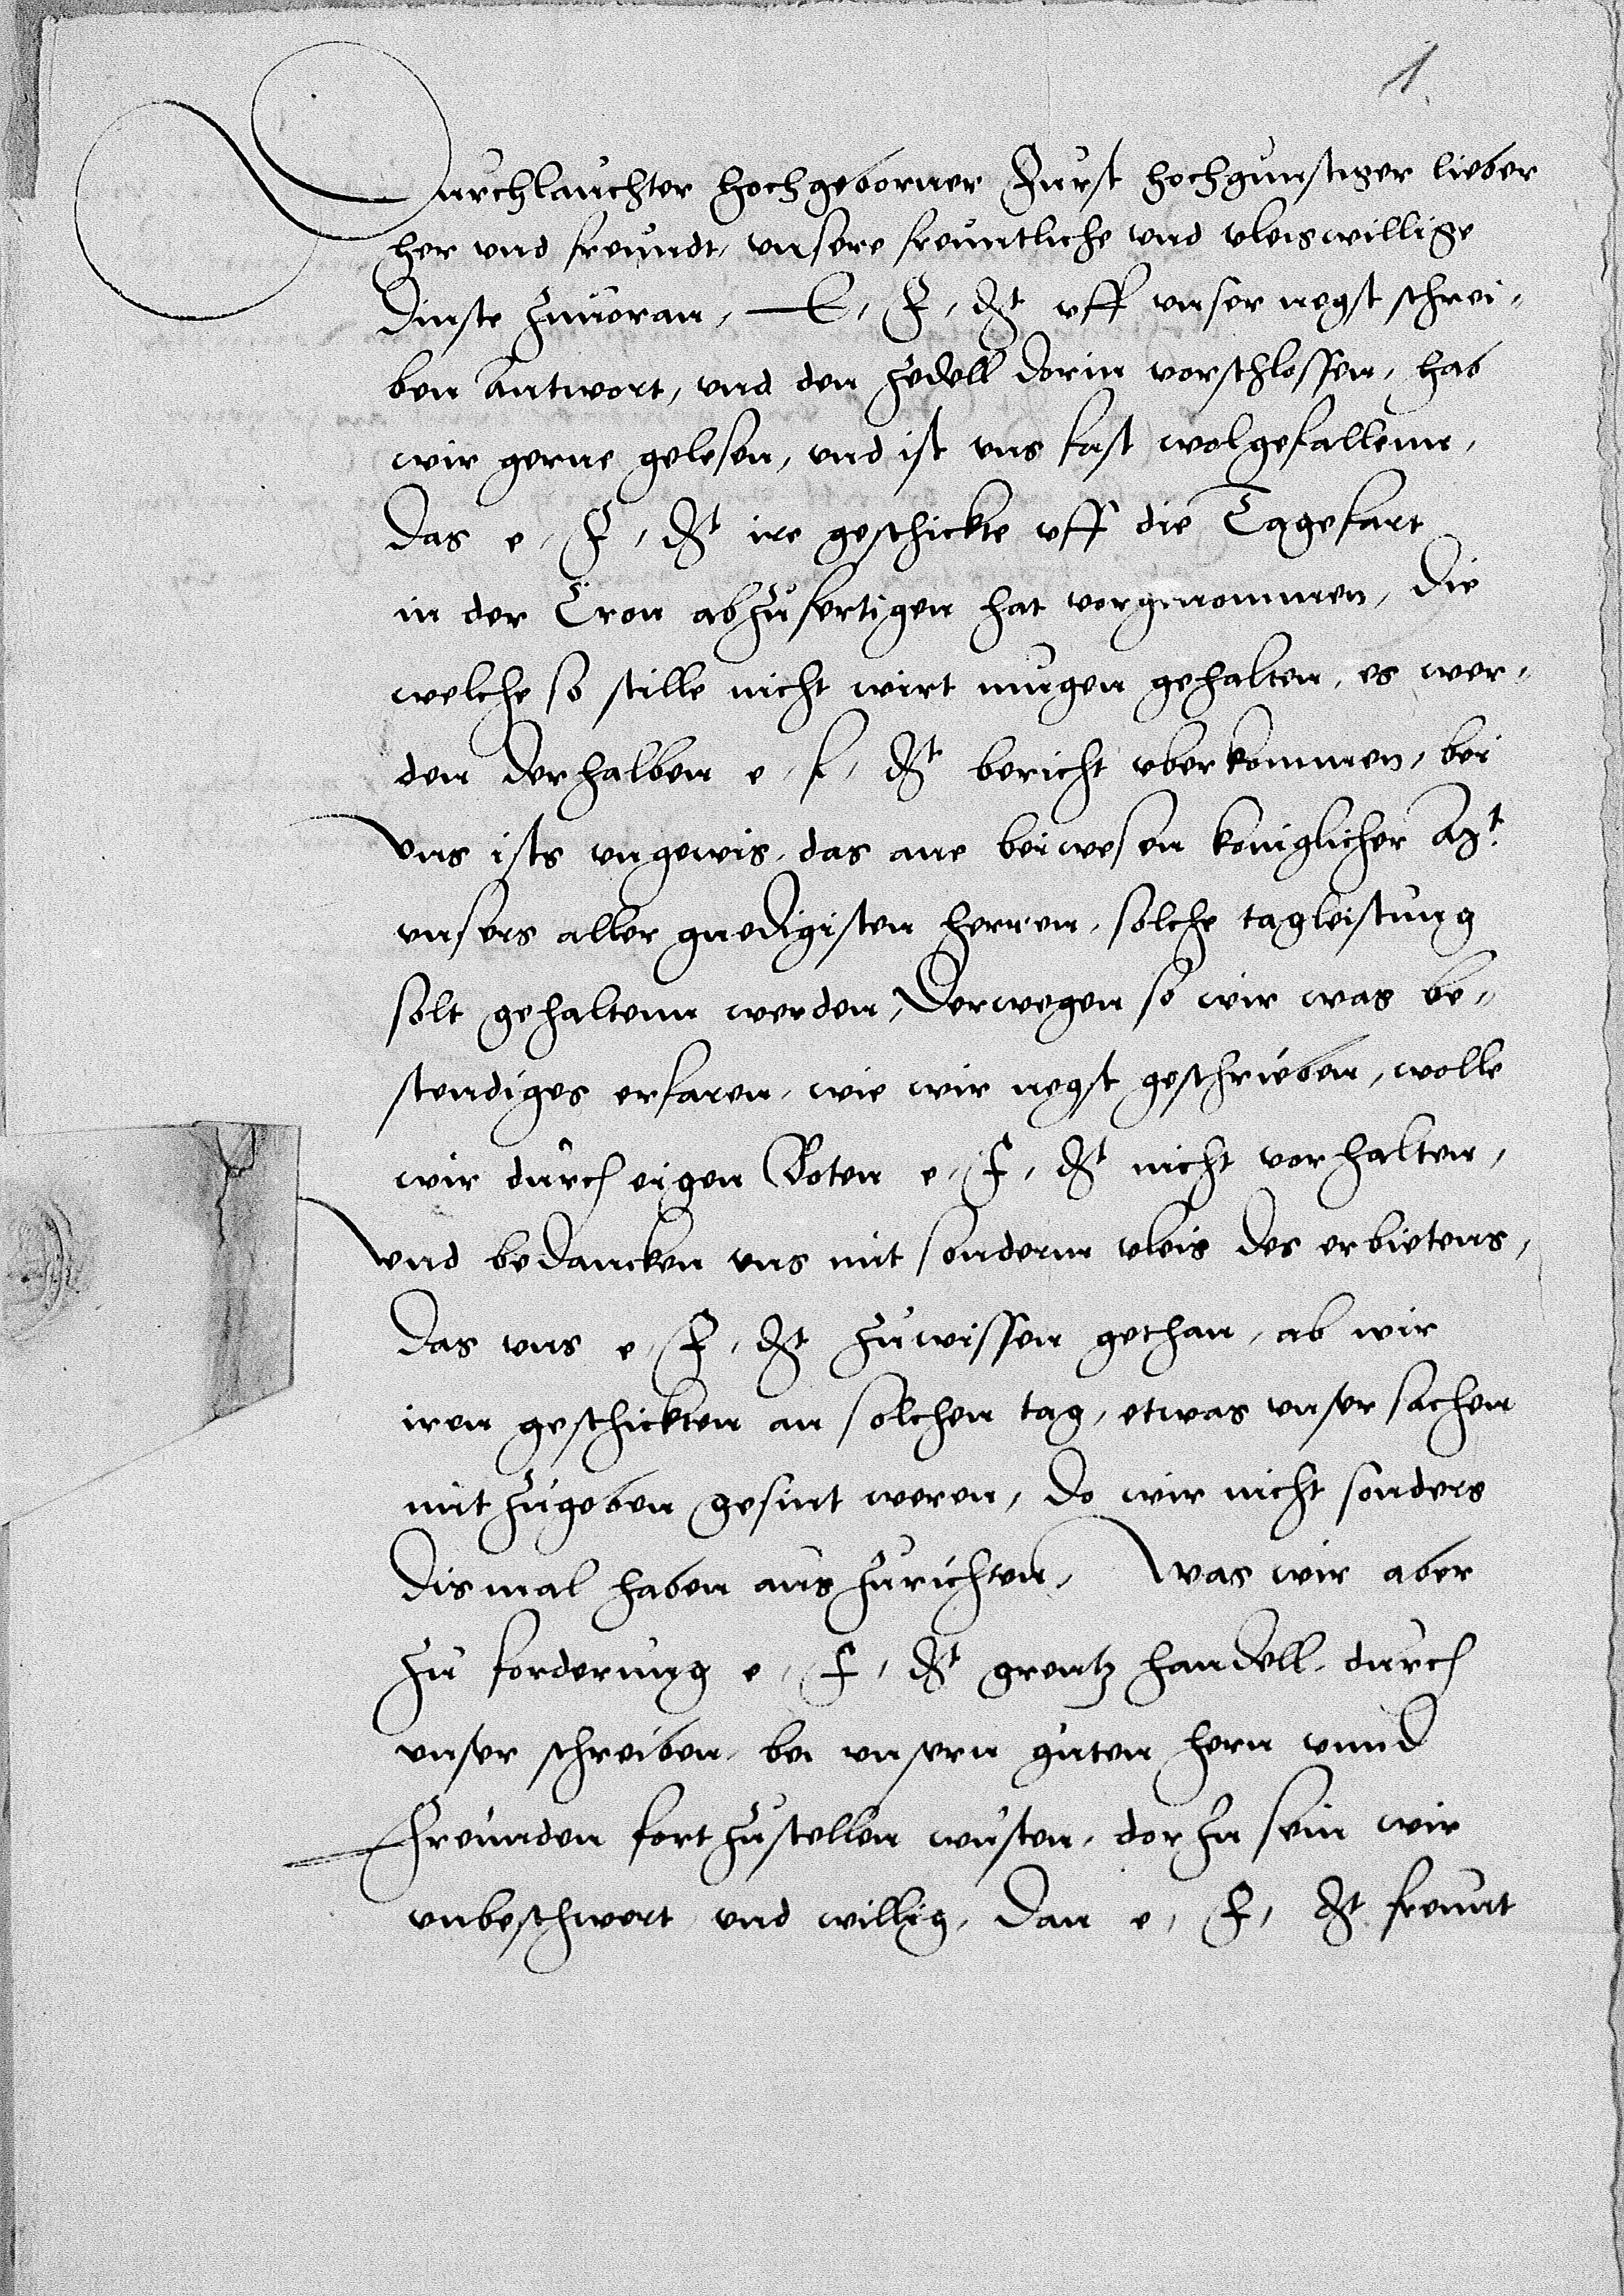 1
Durchlauchter hochgeborner Furst hochgunstiger lieber
her und freundt, unsere freuntliche und vleiswillige
dinste zuuoran, E, F, Dt uff unser negst schrei,
ben Antwort, und den zedell dorin vorschlossen, hab
wir gerne gelesen, und ist uns fast wolgefallenn,
das e, F, Dt ire geschickte uff die Tagefart
in der Cron abzufertigen hat vorgenommen, die
welche so stille nicht wirt mugen gehalten, es wer,,
den derhalben e, f, Dt bericht uberkommen, bei
uns ists ungewis, das ane beiwesen koniglicher Mt.
unsers aller gnedigisten herren, solche tagleistung
solt gehaltenn werden, Derwegen so wir was be,,
stendiges erfaren, wie wir negst geschrieben, wolle
wir durch eigen Boten e, F, Dt nicht vorhalten,
und bedancken uns mit sonderm vleis des erbietens,
das uns e, F, Dt zuwissen gethan, ab wir
iren geschickten an solchen tag, etwas unser sachen
mit zugeben gesint weren, do wir nicht sonders
dismal haben auszurichten, Was wir aber
zu forderung e, F, Dt grentz handell, durch
unser schreiben, bei unsern guten hern unnd
Freunden fort zustellen wusten, dorzu sein wir
unbeschwert und willig, dan e, F, Dt freunt